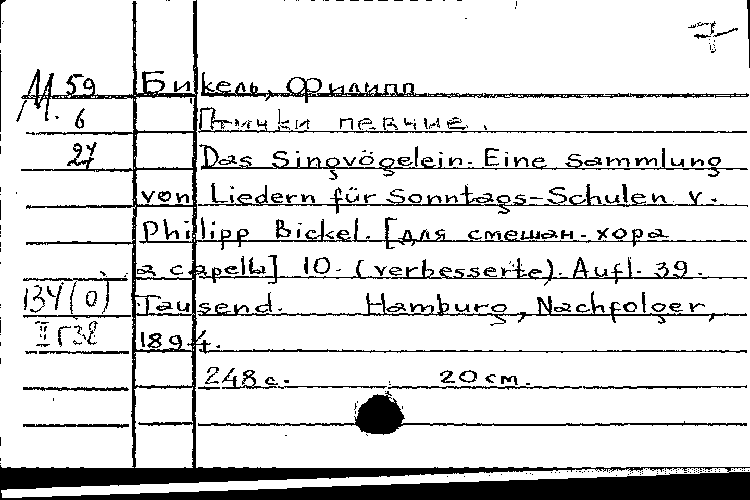 7
М. 59 Бикель, Филипп
6 Птички певчие.
27 Das Singvögelein. Eine Sammlung
von Liedern für Sonntags-Schulen v.
Philipp Bickel. [для смешан. хора
a capella] 10. (verbesserte). Aufl. 39.
134(0) Tausend. Hamburg, Nachfolger,
II Г38 1894.
248 с. 20 см.